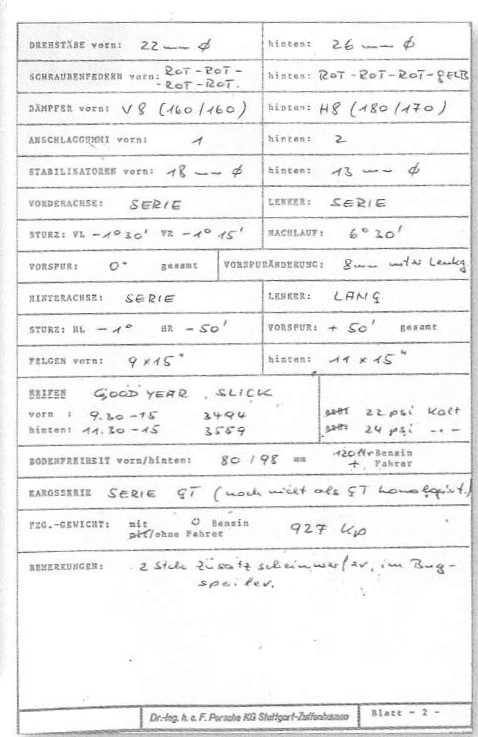 DREHSTÄBE vorn: 22 mm Ø hinten: 26 mm Ø
SCHRAUBENFEDERN vorn: ROT-ROT-
-ROT-ROT. hinten: ROT-ROT-ROT-GELB
DÄMPFER vorn: V8 (160/160) hinten: H8 (180/170)
ANSCHLAGGUMMI vorn: 1 hinten: 2
STABILISATOREN vorn: 18 mm Ø hinten: 13 mm Ø
VORDERACHSE: SERIE LENKER: SERIE
STURZ: VL -1°30' VR -1°15' NACHLAUF: 6°30'
VORSPUR: 0° gesamt VORSPURÄNDERUNG: 8mm unter Lenkg
HINTERACHSE: SERIE LENKER: LANG
STURZ: HL -1° HR -50' VORSPUR: +50' gesamt
FELGEN vorn: 9x15" hinten: 11x15"
REIFEN GOOD YEAR SLICK
vorn : 9.30-15 3494 22 psi Kalt
hinten: 11.30-15 3559 24 psi -"-
BODENFREIHEIT vorn/hinten: 80/98 mm 120 ltr Benzin
+ Fahrer
KAROSSERIE SERIE GT (noch nicht als GT homologiert.)
FZG.-GEWICHT: mit 0 Benzin
mit/ohne Fahrer 927 Kp
BEMERKUNGEN: 2 Stck Zusatzscheinwerfer, im Bug-
spoiler.
Dr.-Ing. h. c. F. Porsche KG Stuttgart-Zuffenhausen Blatt - 2 -